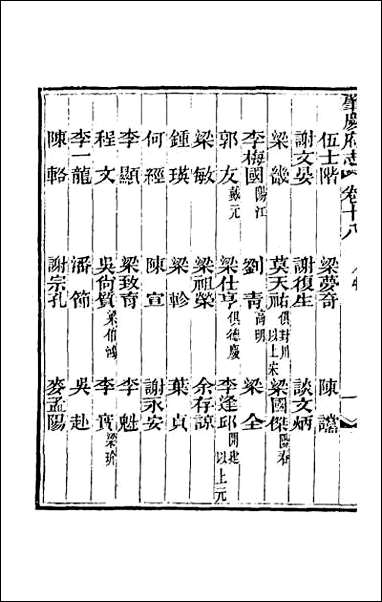 肇慶府志 卷十八 人物 一
伍士階 梁夢奇 陳讜
謝文晏 謝復生 談文炳
梁幾 莫天祐俱封川以上宋 梁國傑陽春
李梅國陽江 劉青高明 梁全
郭友戴元 梁仕亨俱德慶 李逢邱開建以上元
梁敏 梁祖榮 余存諒
鍾瑛 梁軫 葉貞
何經 陳宣 謝永安
李顯 梁致育 李魁
程文 吳尙質梁伯鴻 李實梁玠
李一龍 潘節 吳赴
陳輅 謝宗孔 麥孟陽